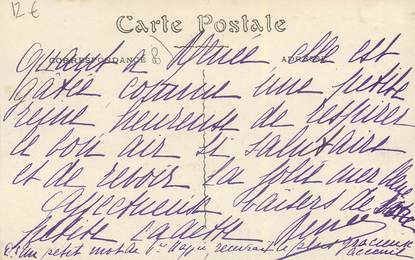 12 €
Carte Postale
CORRESPONDANCE ADRESSE
Quant à Renée, elle est
gâtée comme une petite
reine heureuse de respirer
le bon air si salutaire
et de revoir la jolie mer bleue
Affectueux baisers de votre
petite cadette Renée
P.S. Un petit mot de vous recevrait le plus gracieux
accueil